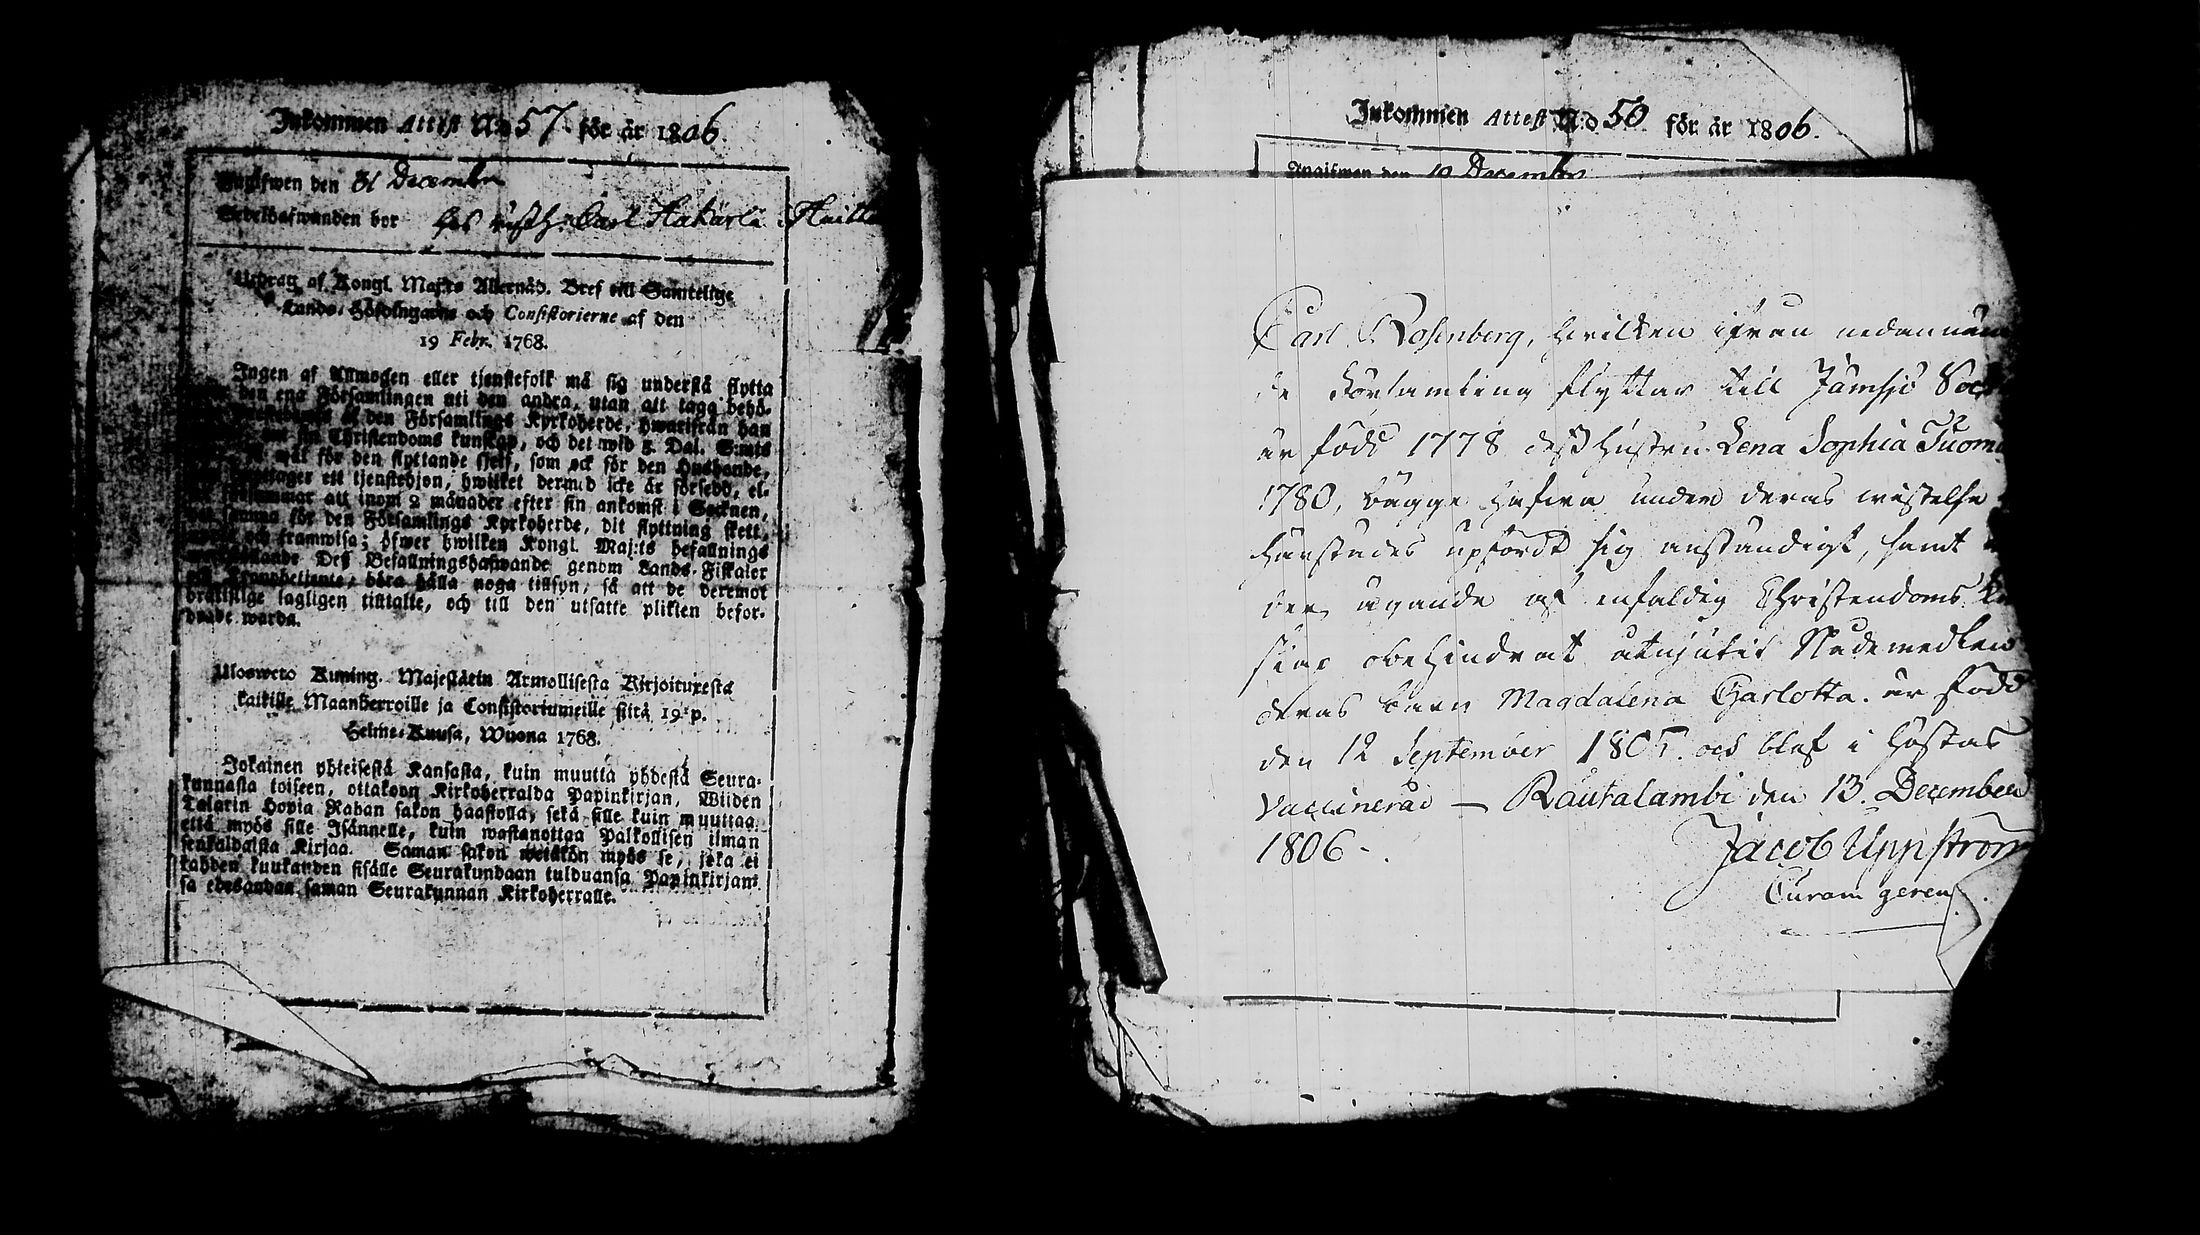 Inkommen Attest N:o 57 för år 1806.
Angifwen den 31 Decembr
Sedelhafwanden bor hos rusth: Carl Hakarla i
Utdrag af Kongl. Maj:ts Allernåd. Bref till Samtelige
Lands-Höfdingarne och Consistorierne af den
19 Febr. 1768.
Ingen af Allmogen eller tjenstefolk må sig understå flytta
den ena Församlingen uti den andra, utan att taga behö-
af den Församlings Kyrkoherde, hwarifrån han
om sin Christendoms kunskap, och det wid 5 Dal. S:mts
wite för den flyttande sjelf, som ock för den Husbonde,
emottager ett tjenstehjon, hwilket dermed icke är försedd, el-
försummar att inom 2 månader efter sin ankomst i Socknen,
samma för den Församlings Kyrkoherde, dit flyttning skett,
och framwisa; öfwer hwilken Kongl. Maj:ts befallnings
Deß Befallningshafwande genom Lands-Fiskaler
och Kronobetjente, böra hålla noga tillsyn, så att de deremot
brottslige lagligen tilltalte, och till den utsatte plikten befor-
drade warda.
Ulosweto Kuning. Majestätin Armollisesta Kirjoituxesta
kaikille Maanherroille ja Consistoriumeille siitä 19 p.
Helme-Kuusa, Wuona 1768.
Jokainen yhteisestä Kansasta, kuin muutta yhdestä Seura-
kunnasta toiseen, ottakoon Kirkoherralda Papinkirjan, Wiiden
Talarin Hopia Rahan sakon haastolla, sekä sille kuin muuttaa
että myös sille Isännelle, kuin wastanottaa Palkollisen ilman
senkaldaista Kirjaa. Saman sakon wetäkön myös se, joka ei
kahden kuukauden sisälle Seurakundaan tulduansa Papinkirjans
sa edesandaa saman Seurakunnan Kirkoherralle.
Inkommen Attest N:o 50 för år 1806.
Angifwen den 19 Decembr
Carl Rosenberg, hvilken ifrån nedannäm
de Församling flyttar till Jämsjö Sock
är född 1778 deß hustru Lena Sophia Tuom
1780, bägge hafva under deras vistelse
härstädes upfördt sig anständigt, samt
der, ägande af enfaldig Christendoms
skap obehindrat åtnjutit Nademedlen
deras barn Magdalena Charlotta. är född
den 12 September 1805. och blef i höstas
vaccinerad — Rautalambi den 13. December
1806 -.
Jacob Uppström
Curam geren